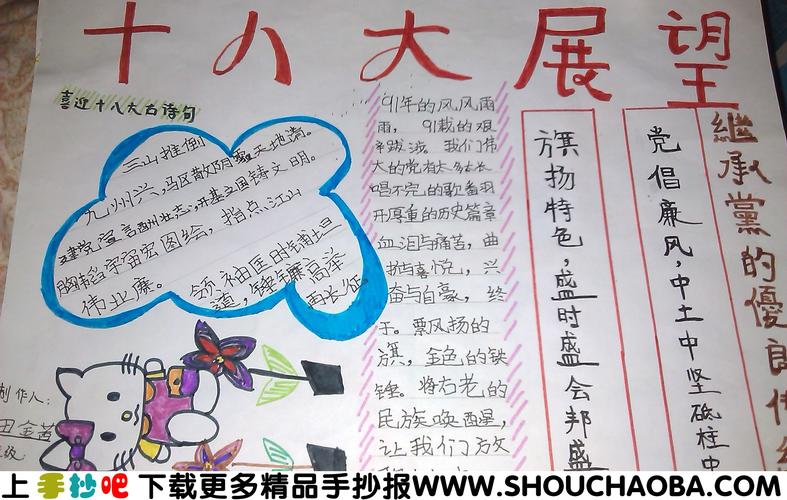 十八大展望
喜近十八大古诗句
三山推倒
九州兴,马区散阴霾天地清。
建党宣言酬壮志,开基立国铸文明。
胸韬宇宙宏图绘,指点江山
伟业赓。 领袖匡时铺坦
道,锤镰高举
再长征。
91年的风风雨
雨, 91载的艰
辛跋涉 我们伟
大的党有太多太长
唱不完的歌番羽
开厚重的历史篇章
血泪与痛苦,曲
折与喜悦,兴
奋与自豪, 终
于。飘风扬的
旗,金色的铁
锤。将古老的
民族唤醒,
让我们方放
旗扬特色,盛时盛会邦盛
党倡廉风,中土中坚砥柱中
繼承黨的優良传
制作人:
田金茜
上手抄吧 下载更多精品手抄报WWW.SHOUCHAOBA.COM!